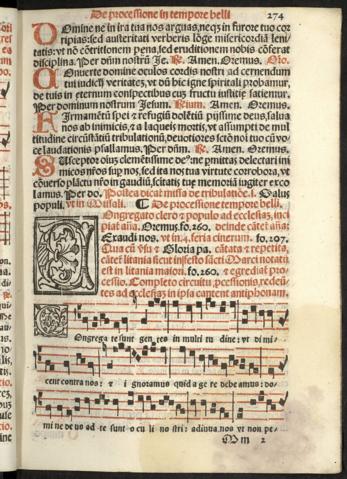 De processione in tempore belli 274
Omine ne in ira tua nos arguas, neqz in furore tuo cor
ripias: sed austeritati verberis lōge misericordiā leni
tatis: vt nō cōtritionem pena, sed eruditionem nobis cōferat
disciplina. Per dn̄m nostrū Je. R. Amen. Oremus. Oro.
Onuerte domine oculos cordis nostri ad cernendum
veritates, vt dū hic igne spiritali probamur,
de tuis in eternum conspectibus cus fructu iustitię satiemur.
Per dominum nostrum Jesum. R. Amen. Oremus.
Irmamētū spei et refugiū dolētiū piissime deus, salua
nos ab inimicis, et a laqueis mortis, vt assumpti de mul
titudine circūstātiū tribulationū, deuotiores iectō noi tuo cū vo-
ce laudationis psallamus. Per dn̄m. R. Amen. Oremus.
Susceptor oius clemētissime de9 ne pmittas delectari ini
micos nr̄os sup nos, sed ita nos tua virtute corrobora, vt
cōuerso plāctu nr̄o in gaudiū, scitatis tuę memoriā iugiter exco
lamus. Per do. Postea dicat missa de tribulatiōe. s. Salus
populi, vt in Missali. ¶ De processione tempore belli.
Ongregato clero et populo ad ecclesias, inci
piat aña. Oremus. fo. 260. deinde cātet añā:
Exaudi nos, vt in .4. feria cinerum. fo. 207.
Cum et Gloria pa. cātata et repetita,
cātet litania sicut in festo sācti Marci notata
est in litania maiori. fo. 260. et egrediat pro
cessio. Completo circuitu pcessionis, redeū-
tes ad ecclesias in ipsa cantent antiphonam.
Ongrega te sunt gen tes in multi tu dine: vt dimi-
cent contra nos: et i gnoramus quid a ge re debe amus: do-
mi ne de us ad te sunt o cu li no stri: adiuua nos vt non pe-
Mm 2